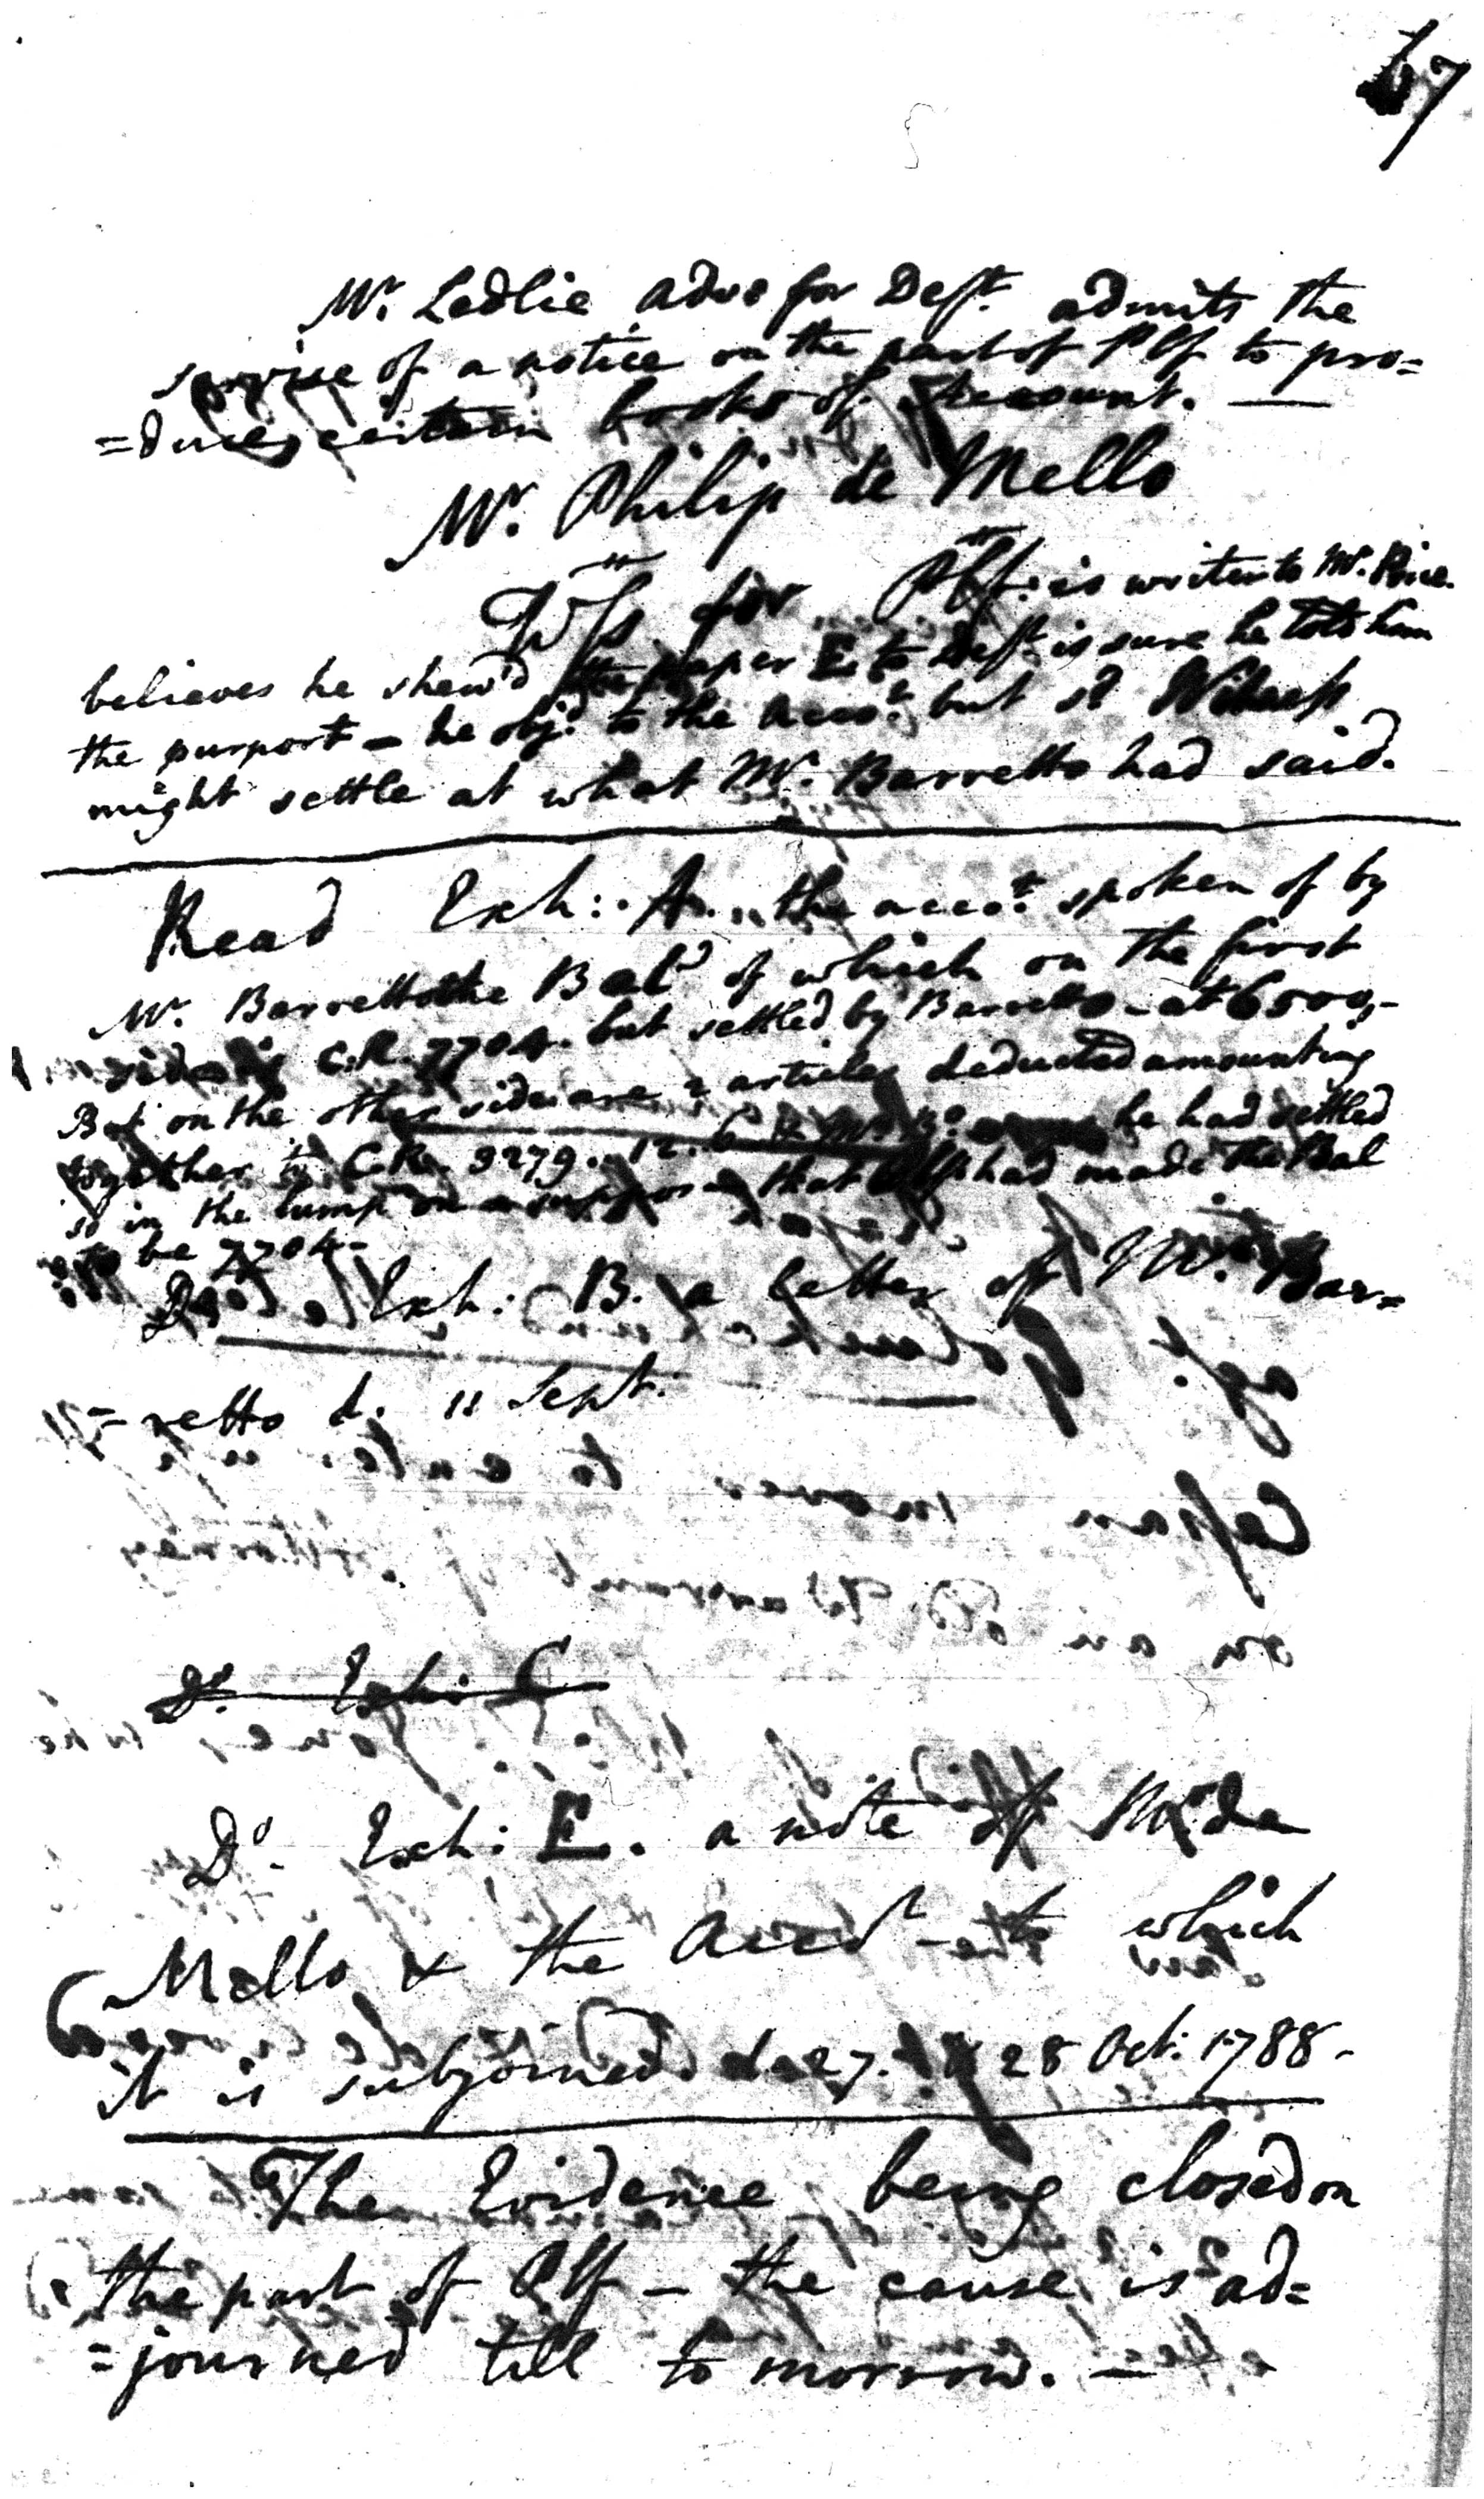 67
Mr. Ledlie advo for Deft. admits the
service of a notice on the part of Plf to pro=
=duce certain books of Account. —
Mr. Philip de Mello
Wss. for Plf: is writer to Mr. Price.
believes he shew'd the paper E. to Deft. is sure he told him
the purport - he obj.d to the Acco.t but sd. Witness
might settle at what Mr. Barretto had said.
Read Exh: A. the acco.t spoken of by
Mr. Barretto the Bal.e of which on the first
side is C.R. 7704. but settled by Barretto - at 6500,-
But on the other side are 2 articles deducted amounting
together to C.Rs. 3279.. 12. 6 he had settled
so in the lump on a suppos that Plf had made the Bal
to be 7704 -
Do Exh: B. a letter of Mr. Bar=
=retto d. 11 Sept.
Do. Exh: C
Do. Exh: E. a note of Mr de
Mello & the Acco.t to which
it is subjoined d. 27. & 28 Oct: 1788 -
The Evidence being closed on
the part of Plf - the cause is ad=
=journed till to morrow. —